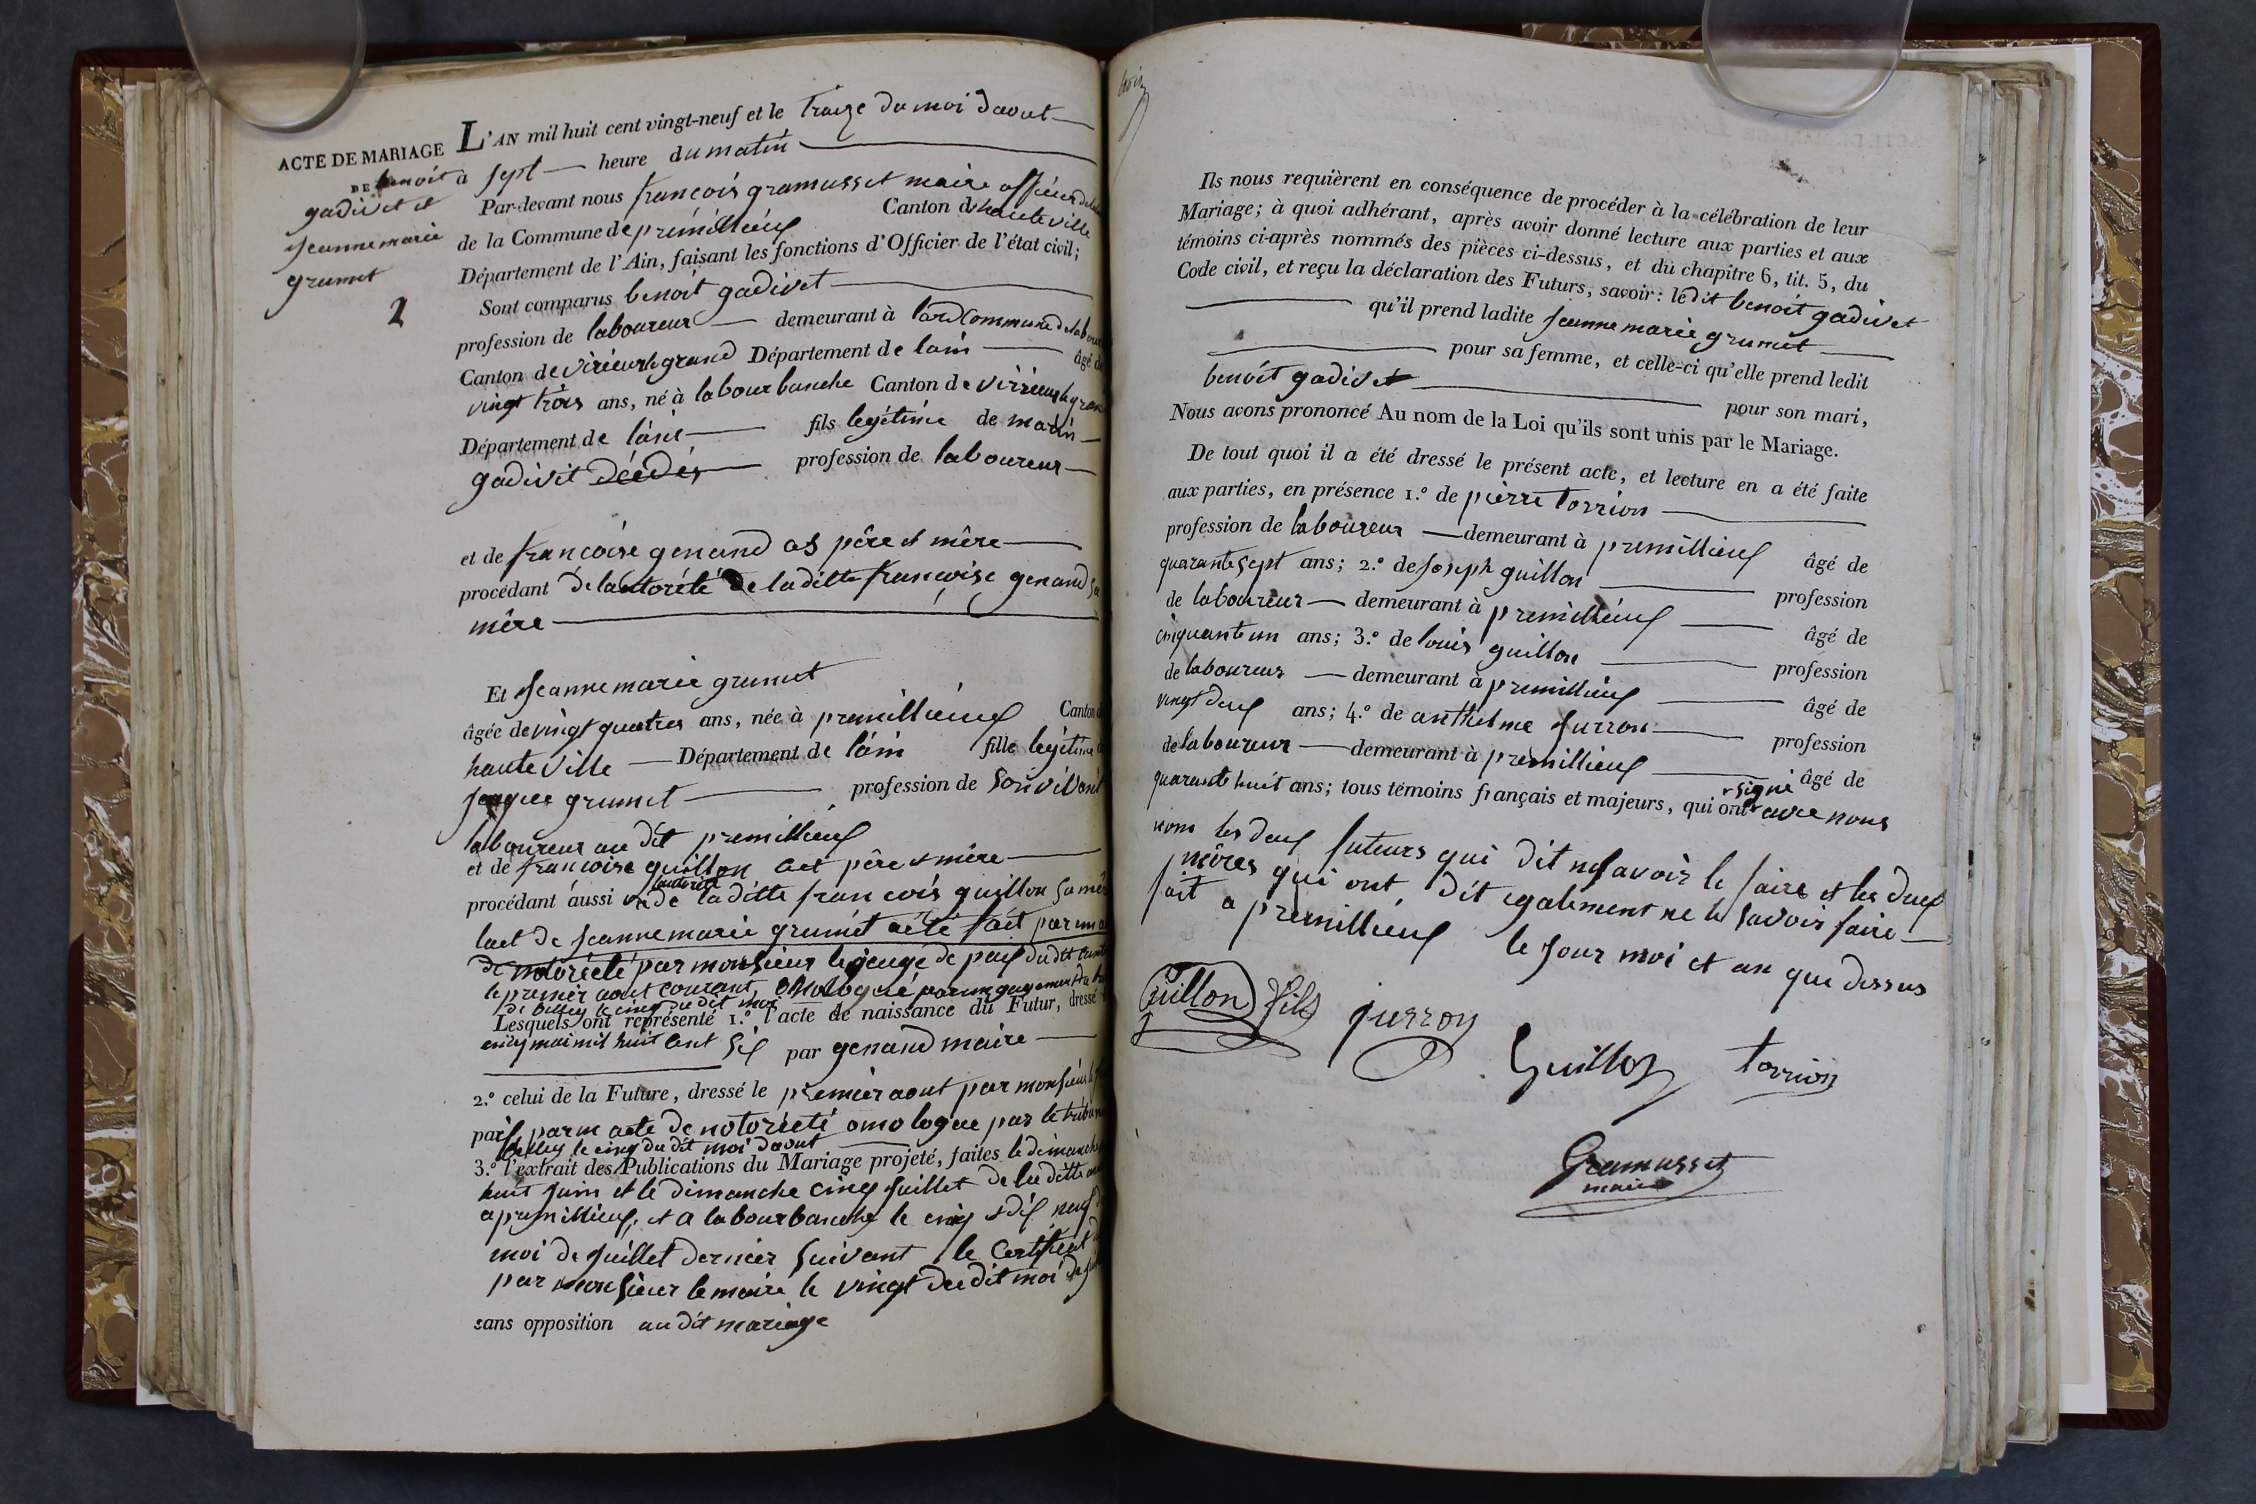 ACTE DE MARIAGE
DE benoit
gadivet et
jeanne marie
grumet
2
L'AN mil huit cent vingt-neuf et le traize du moi daout
à sept heure du matin
Par-devant nous francois gramusset maire officier
de la Commune de prémillieux Canton dhauteville
Département de l'Ain, faisant les fonctions d'Officier de l'état civil;
Sont comparus benoit gadivet
profession de laboureur demeurant à
Canton de virieux le grand Département de lain âgé de
vingt trois ans, né à labourbanche Canton de virrieux le grand
Département de lain fils legitime de
gadivet profession de laboureur
et de francoise genand as père et mère
procédant de lautorité de la ditte françoise genand sa
mère
Et jeanne marie grumet
âgée de vingt quatres ans, née à premillieux Canton
hauteville Département de lain fille legitime
jaque grumet profession de son vivant
laboureur au dit premillieux
et de francoise guillon père et mère
procédant aussi de lautorité de la ditte francois guillon sa mère
lact de jeanne marie grumet a été fait par un
de notorieté par monsieur le jeuge de paix du dit
le premier aout courant,
de belley le cinq du dit moi
Lesquels ont représenté 1.º l'acte de naissance du Futur, dressé
mai mil huit cent six par genand maire
2.º celui de la Future, dressé le premier aout par monsieur
paix par un acte de notorieté omologue par le tribunal
belley le cinq du dit moi daout
3.º l'extrait des Publications du Mariage projeté, faites le dimanche
huit juin et le dimanche cinq juillet de la ditte
a premillieux, et a labourbanche le cinq et dix neuf
moi de juillet dernier suivant le certificat
par monsieur le maire le vingt du dit moi de
sans opposition au dit mariage
Ils nous requièrent en conséquence de procéder à la célébration de leur
Mariage; à quoi adhérant, après avoir donné lecture aux parties et aux
témoins ci-après nommés des pièces ci-dessus, et du chapitre 6, tit. 5, du
Code civil, et reçu la déclaration des Futurs, savoir: ledit benoit gadivet
qu'il prend ladite jeanne marie grumet
pour sa femme, et celle-ci qu'elle prend ledit
benoit gadivet pour son mari,
Nous avons prononcé Au nom de la Loi qu'ils sont unis par le Mariage.
De tout quoi il a été dressé le présent acte, et lecture en a été faite
aux parties, en présence 1.º de pierre torrion
profession de laboureur demeurant à premillieux âgé de
quarante sept ans; 2.º de joseph guillon profession
de laboureur demeurant à premillieux âgé de
cinquante un ans; 3.º de louis guillon profession
de laboureur demeurant à premillieux âgé de
vingt deux ans; 4.º de anthelme jurron profession
de laboureur demeurant à premillieux âgé de
quarante huit ans; tous témoins français et majeurs, qui ont signé avec nous
nom les deux futeurs qui dit ne savoir le faire et les deux
mères qui ont dit egalement ne le savoir faire
fait a premillieux le jour moi et an que dessus
Guillon fils
jurron
Guillon
torrion
Gramusset
maire